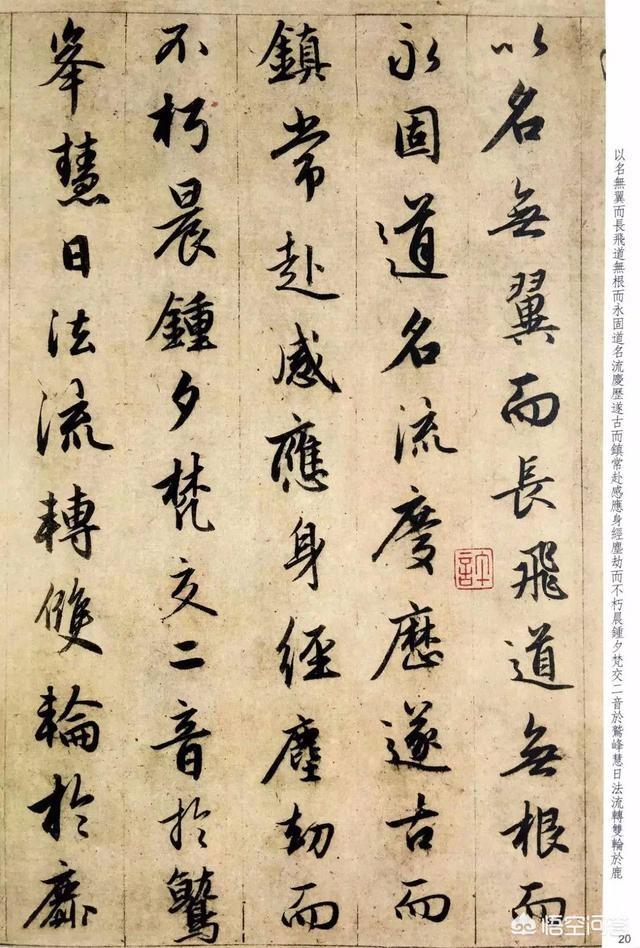 以名無翼而長飛道無根而
永固道名流慶歷遂古而
鎮常赴感應身經塵劫而
不朽晨鍾夕梵交二音於鷲
峯慧日法流轉雙輪於鹿
許
以名無翼而長飛道無根而永固道名流慶歷遂古而鎮常赴感應身經塵劫而不朽晨鍾夕梵交二音於鷲峰慧日法流轉雙輪於鹿
悟空问答
20